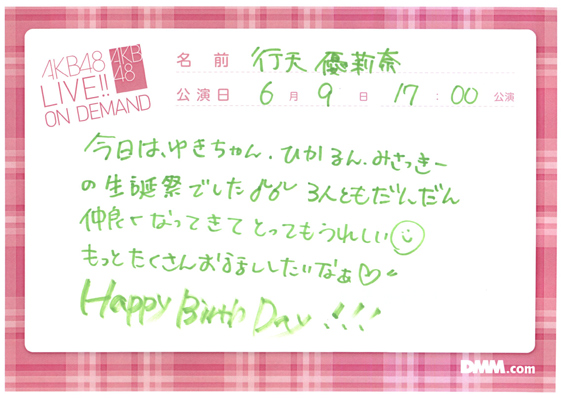 AKB48
LIVE!!
ON DEMAND
AKB
48
名前 行天 優莉奈
公演日 6月 9日 17:00 公演
今日は、ゆきちゃん.ひかるん.みさっきー
の生誕祭でした♪♪ 3人ともだんだん
仲良くなってきてとってもうれしい☺
もっとたくさんおはなししたいなぁ♡
Happy Birth Day!!!
DMM.com